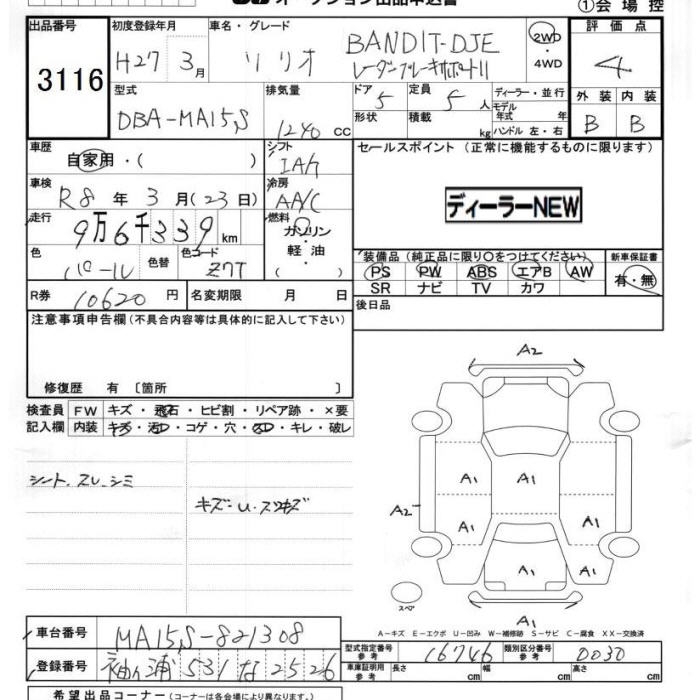 オークション出品申込書
①会場控
出品番号 初度登録年月 車名・グレード 2WD・4WD 評価点
3116 H27 3月 ソリオ BANDIT-DJE レーダーブレーキサポートII 4
型式 排気量 ドア 5 定員 5人 ディーラー・並行 外装 内装
DBA-MA15S 1240cc 形状 積載 kg モデル年式 年 ハンドル 左・右 B B
車歴 シフト セールスポイント(正常に機能するものに限ります)
自家用・( ) IAT
車検 冷房 ディーラーNEW
R8年3月(23日) AA/C
走行 燃料
9万6千339km ガソリン
色 色替 色コード 軽油
パール Z7T ( )
装備品(純正品に限り○をつけてください) 新車保証書
PS PW ABS エアB AW 有・無
SR ナビ TV カワ
R券 10620円 名変期限 月 日 後日品
注意事項申告欄(不具合内容等は具体的に記入して下さい)
修復歴 有〔箇所 〕
検査員 FW キズ・飛石・ヒビ割・リペア跡・×要
記入欄 内装 キズ・汚れ・コゲ・穴・スレ・キレ・破レ
シート、スレ、シミ
キズ-U・スリキズ
A2
A1 A1
A2 A1 A1
A1 A1
スペア
A-キズ E-エクボ U-凹み W-補修跡 S-サビ C-腐食 XX-交換済
車台番号 MA15S-821308
型式指定番号 参考 16746 類別区分番号 参考 0030
登録番号 袖ヶ浦 531 な 2526
車庫証明用 参考 長さ cm 幅 cm 高さ cm
希望出品コーナー(コーナーは各会場により異なります。)